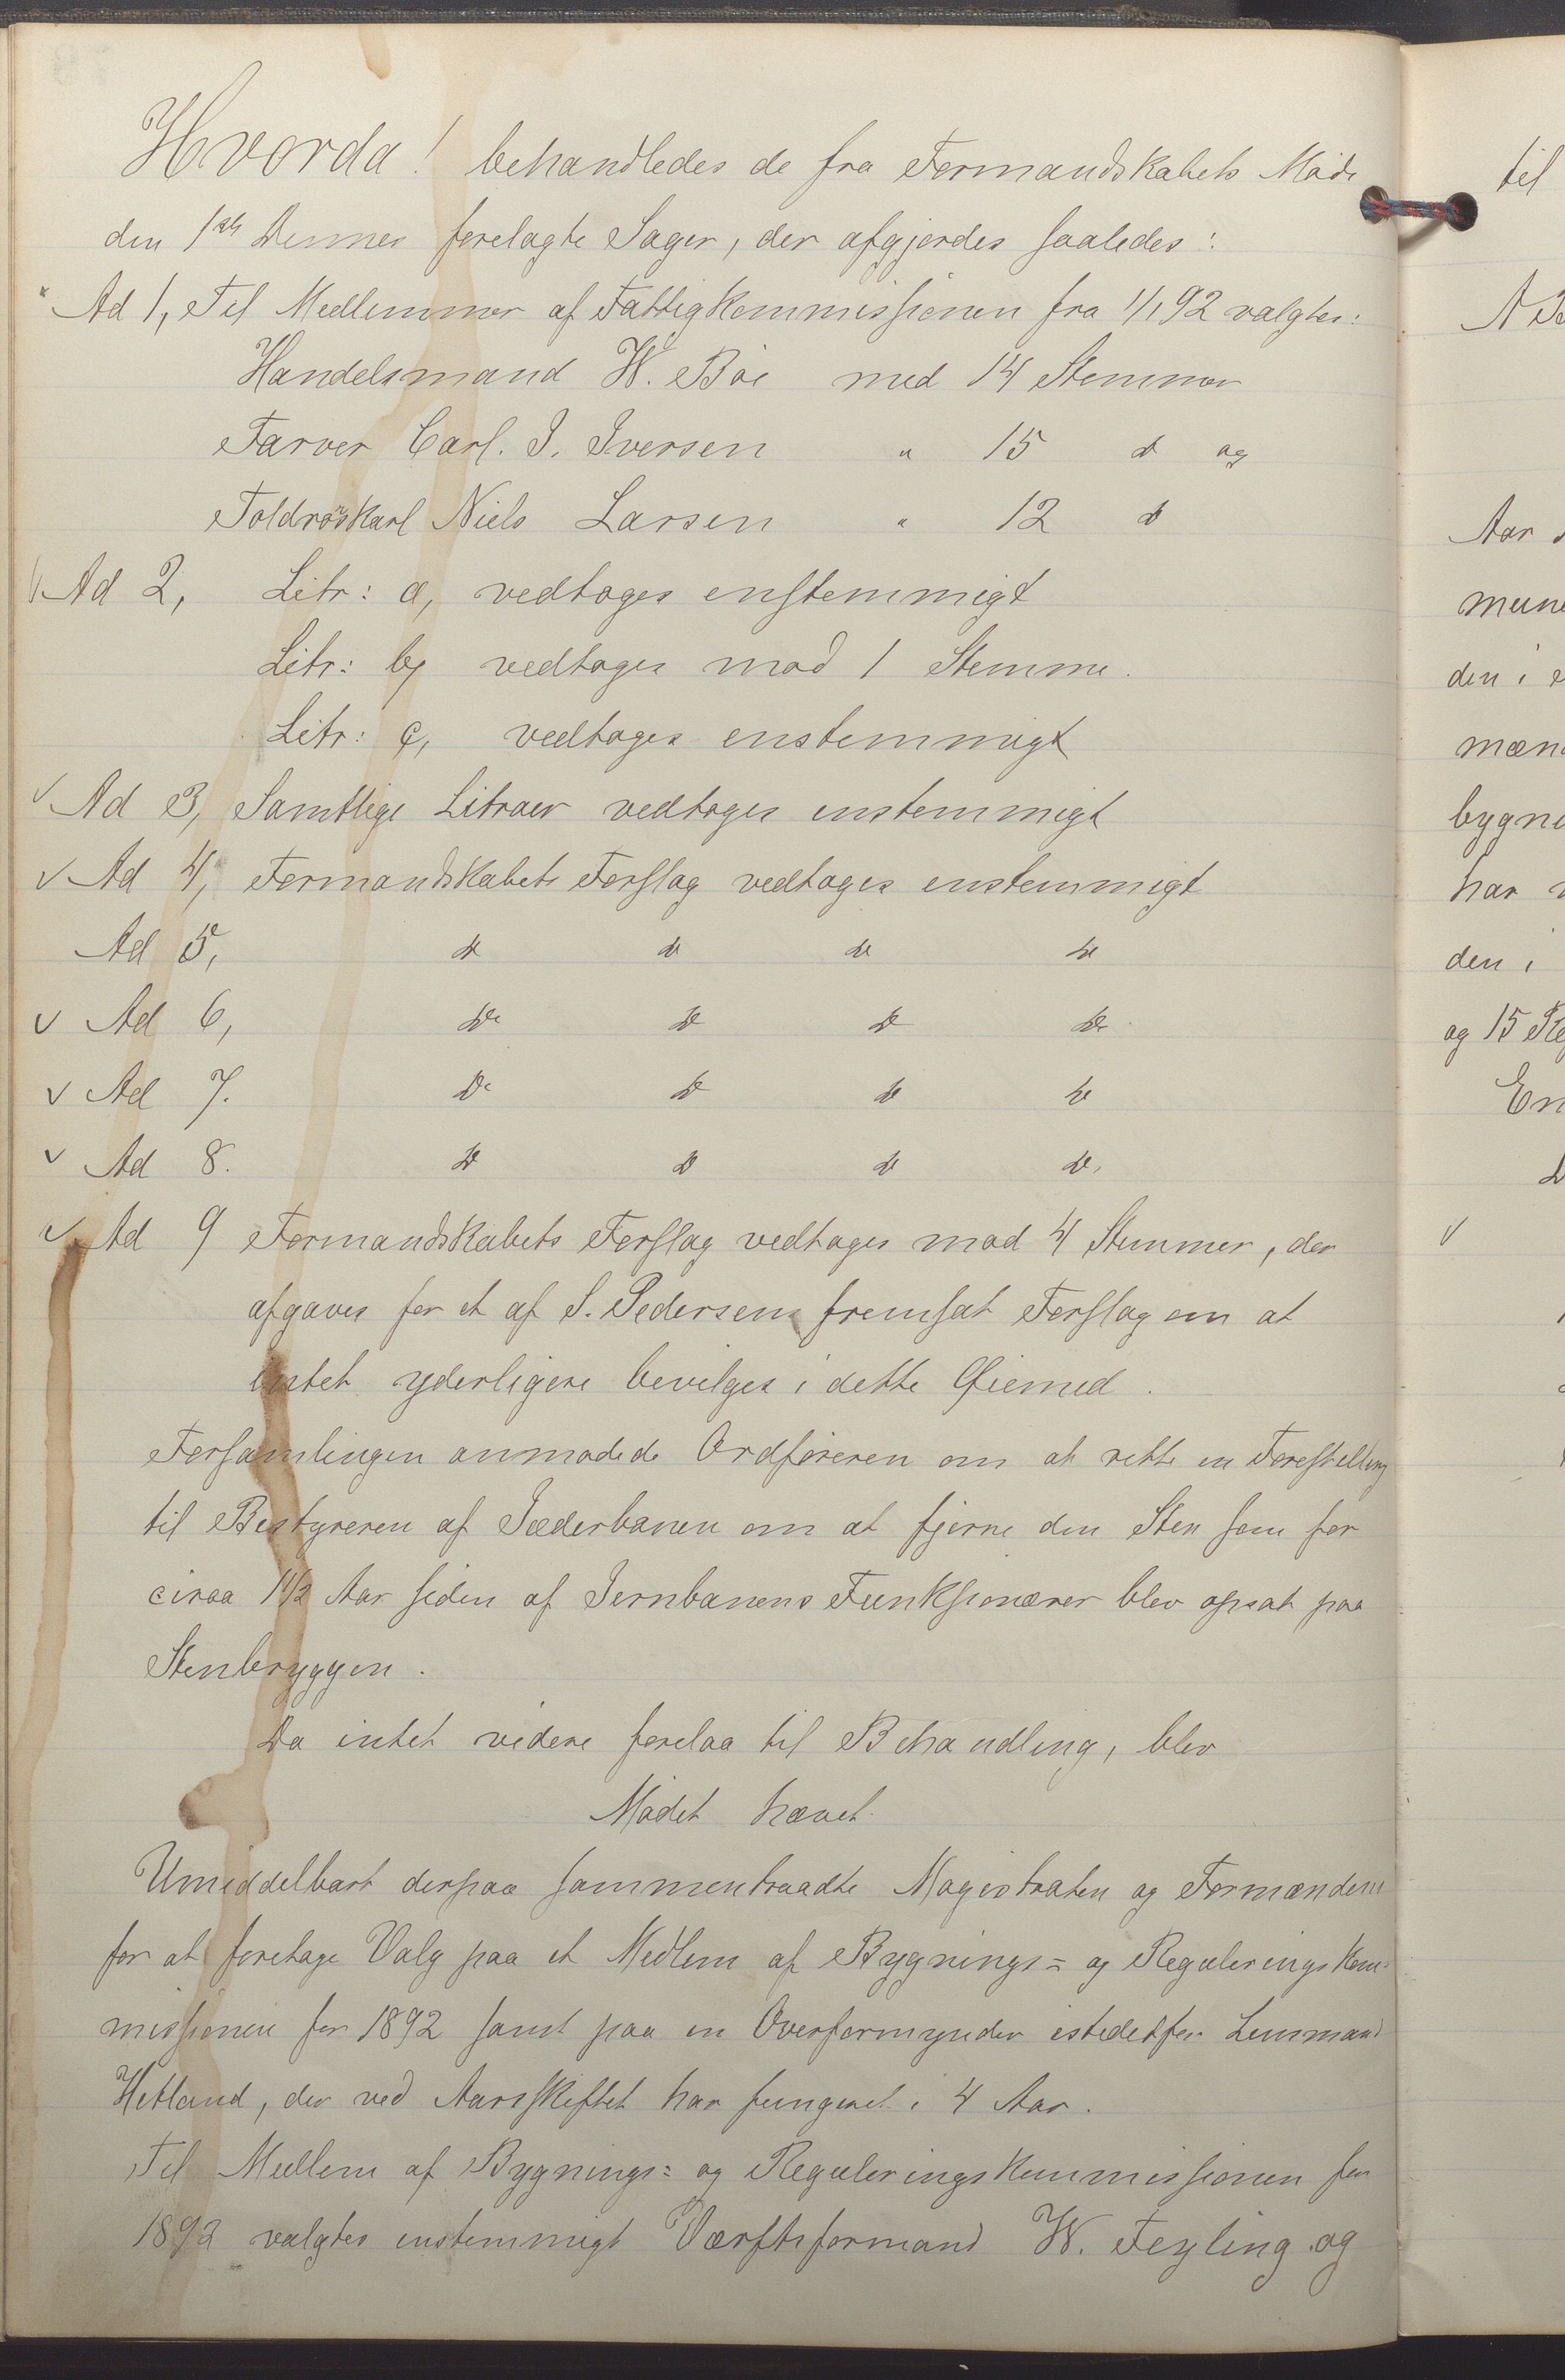 Hvorda! behandledes de fra Formandskabets Møde
den 1ste Dennes forelagte Sager, der afgjordes saaledes:
Ad 1, Til Medlemmer af Fattigkommissionen fra 1/1 92 valgtes:
Handelsmand W. Bøe med 14 Stemmer
Farver Carl. I. Iversen " 15 do og
Toldrorskarl Niels Larsen " 12 do
Ad 2, Litr: a, vedtoges enstemmigt
Litr: b, vedtoges mod 1 Stemme.
Litr: c, vedtoges enstemmigt
✓ Ad 3, Samtlige Litraer vedtoges enstemmigt
✓ Ad 4, Formandskabets Forslag vedtoges enstemmigt
Ad 5, do do do do
✓ Ad 6, Do Do Do Do
✓ Ad 7. Do Do do do
✓ Ad 8. Do Do do do.
✓ Ad 9 Formandskabets Forslag vedtoges mod 4 Stemmer, der
afgaves for et af S. Pedersen fremsat Forslag om at
Intet yderligere bevilges i dette Øiemed.
Forsamlingen anmodede Ordføreren om at rette en Forestilling
til Bestyreren af Jæderbanen om at fjerne den Sten som for
circa 1 1/2 Aar siden af Jernbanens Funksionærer blev opsat paa
Stenbryggen.
Da intet videre forelaa til Behandling, blev
Mødet hævet.
Umiddelbart derpaa sammentraadte Magistraten og Formændene
for at foretage Valg paa et Medlem af Bygnings= og Reguleringskom=
missionen for 1892 samt paa en Overformynder istedetfor Lensmand
Hetland, der ved Aarsskiftet har fungeret i 4 Aar.
Til Medlem af Bygnings= og Reguleringskommissionen for
1892 valgtes enstemmigt Værftsformand W. Feyling og
til
Aar
den i
bygni
har
den i
og 15
En
✓